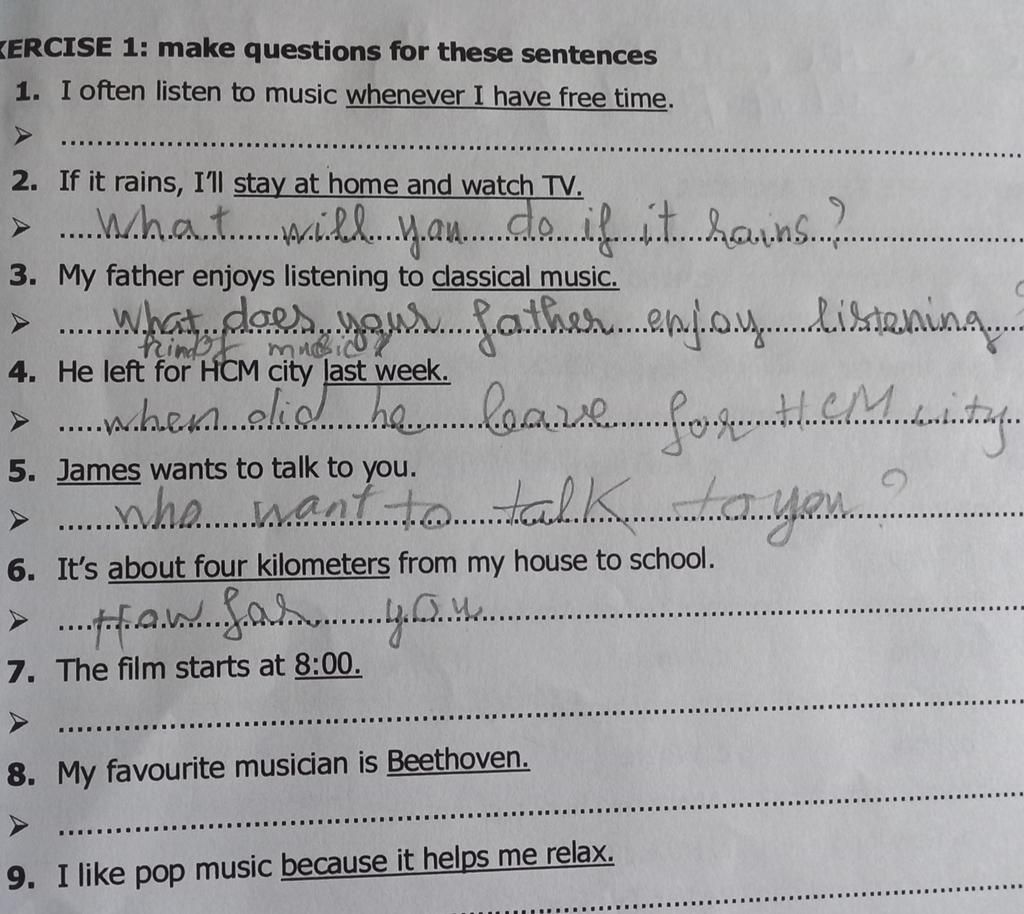 XERCISE 1: make questions for these sentences
1. I often listen to music whenever I have free time.
➢ ........................................
2. If it rains, I'll stay at home and watch TV.
➢ What will you do if it rains?
3. My father enjoys listening to classical music.
➢ what does your father enjoy listening?
kind of music?
4. He left for HCM city last week.
➢ when did he leave for HCM city
5. James wants to talk to you.
➢ who want to talk to you?
6. It's about four kilometers from my house to school.
➢ How far you
7. The film starts at 8:00.
➢ ........................................
8. My favourite musician is Beethoven.
➢ ........................................
9. I like pop music because it helps me relax.